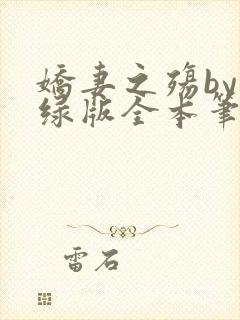 嬌妻之殤by
绿版全本筆
雷石